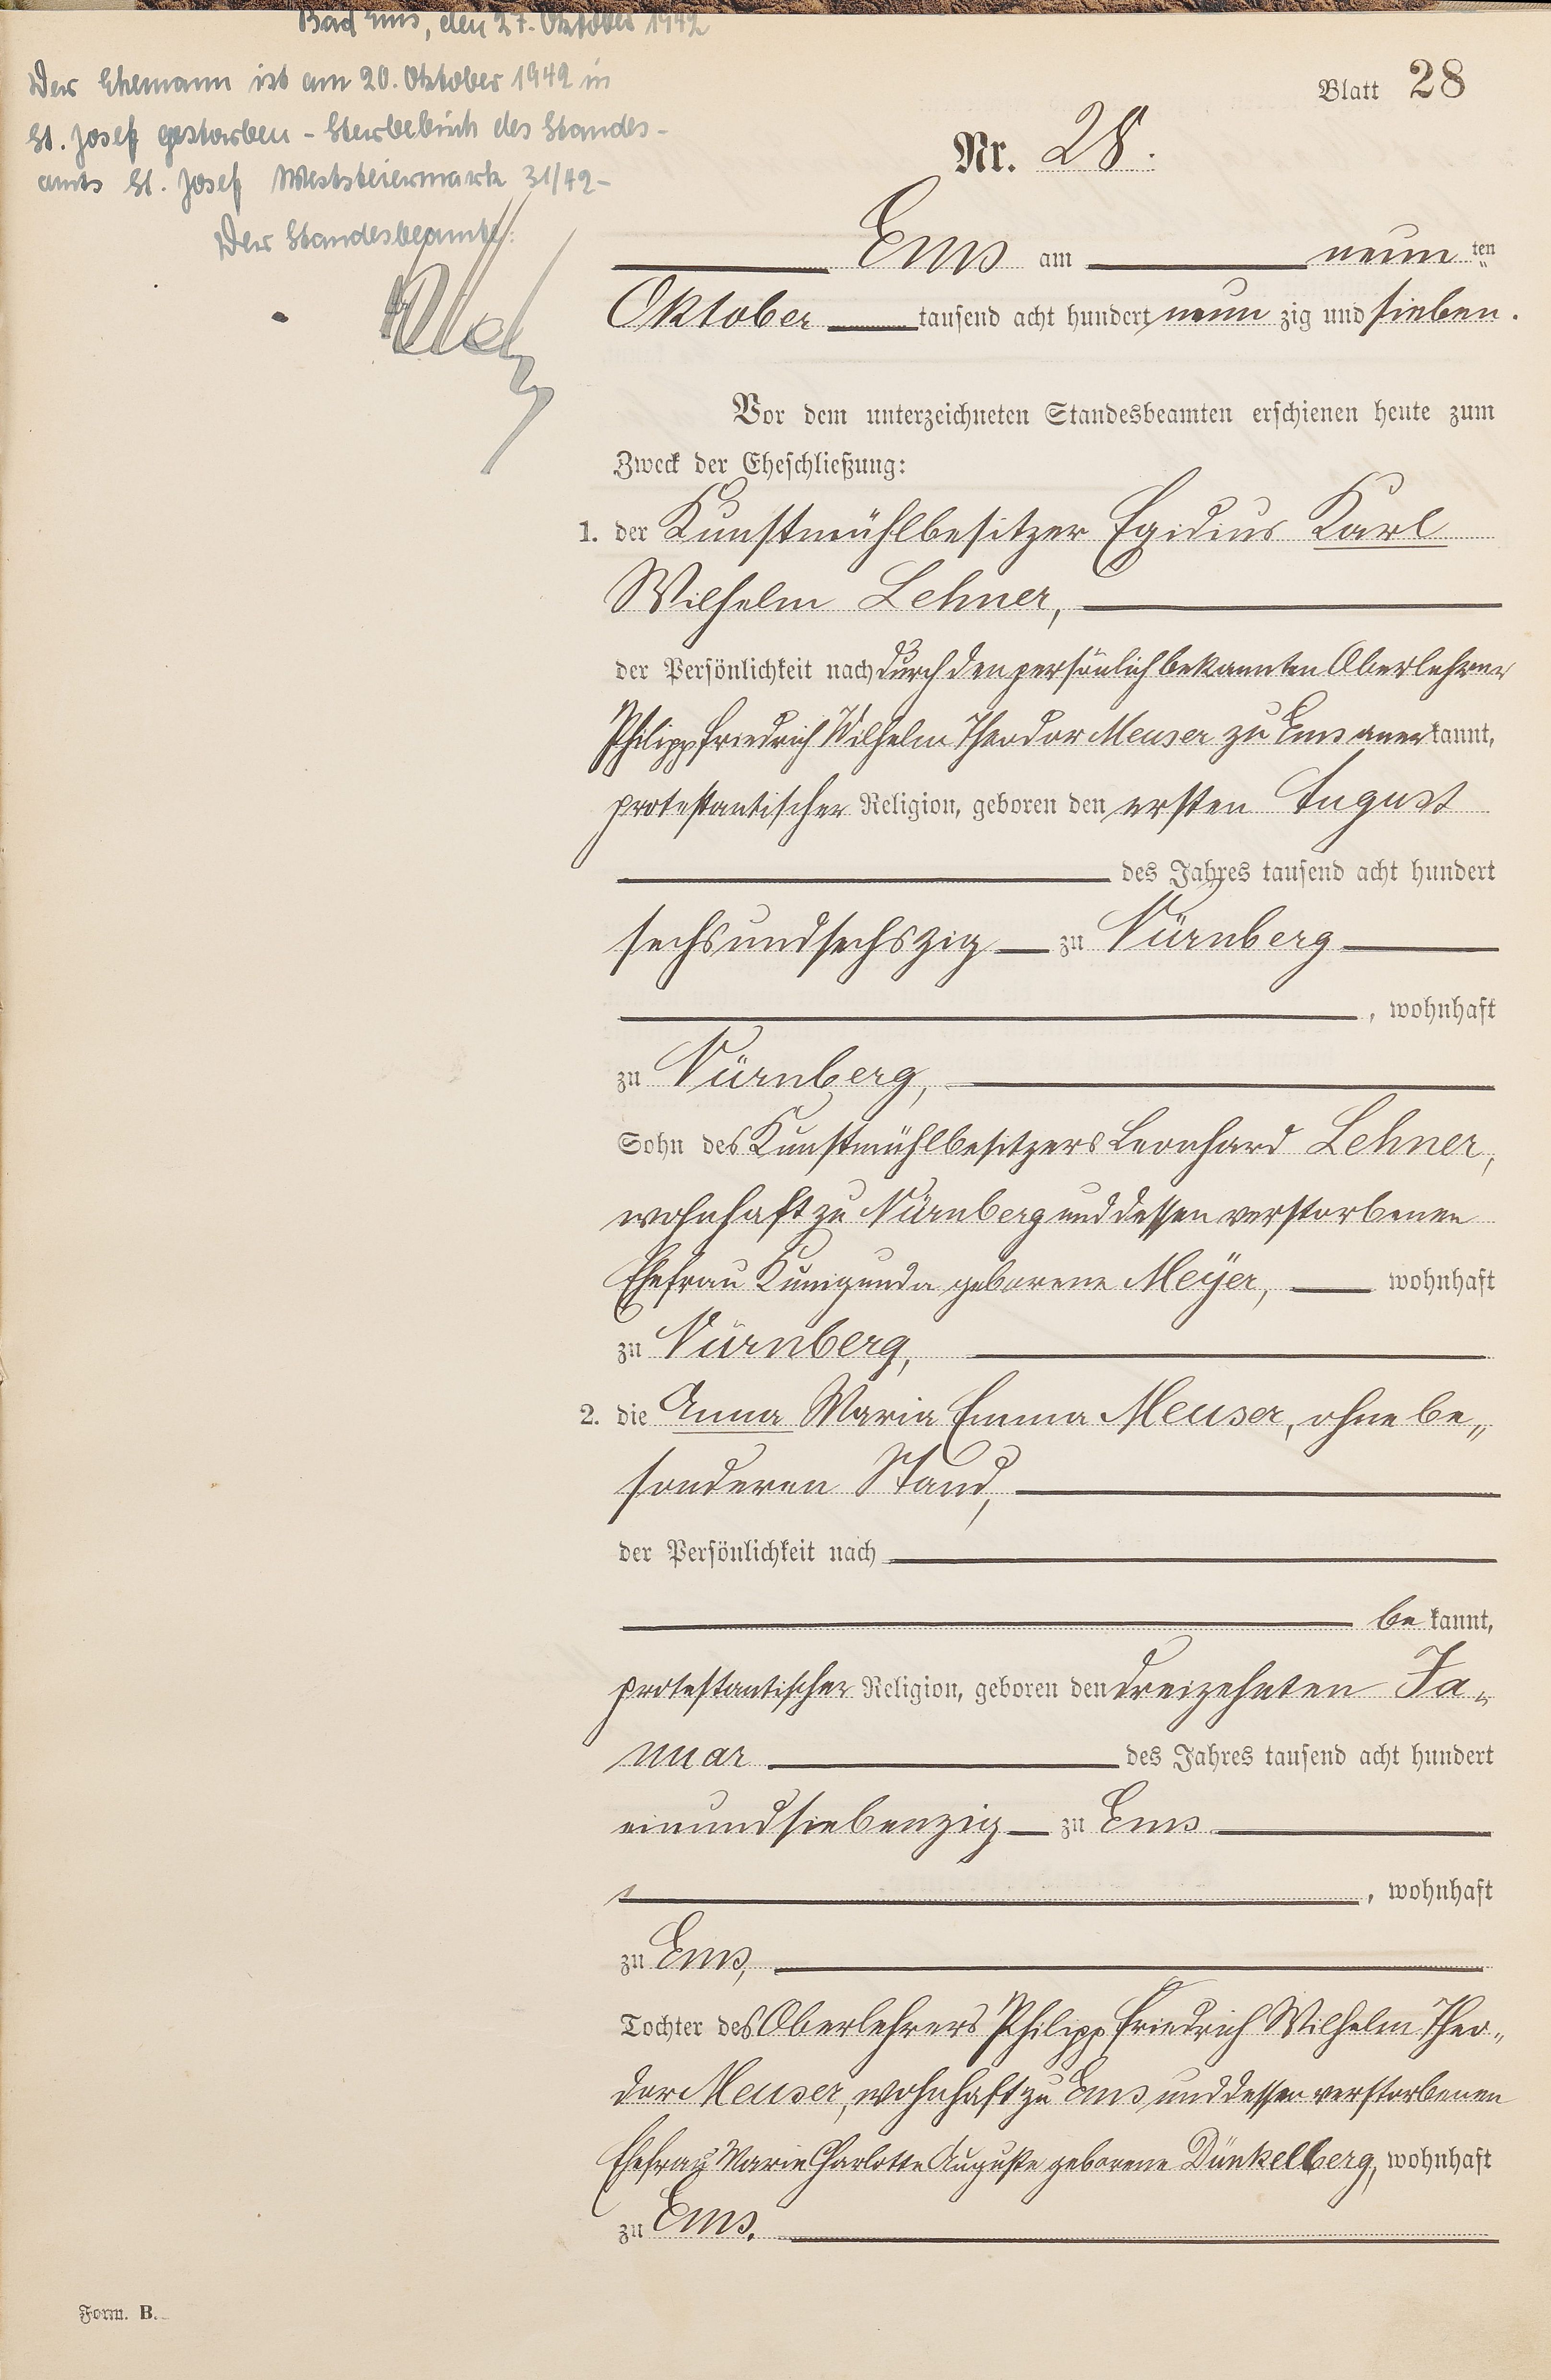 Bad Ems, den 27. Oktober 1942
Der Ehemann ist am 20. Oktober 1942 in
St. Josef gestorben - Sterbebuch des Standes-
amts St. Josef Weststeiermark 31/42-
Der Standesbeamte:
Blatt 28
Nr. 28.
Ems am neunten
Oktober tausend acht hundert neunzig und sieben.
Vor dem unterzeichneten Standesbeamten erschienen heute zum
Zweck der Eheschließung:
1. der Kunstmühlbesitzer Egidius Karl
Wilhelm Lehner,
der Persönlichkeit nach durch den persönlich bekannten Oberlehrer
Philipp Friedrich Wilhelm Theodor Meuser zu Ems anerkannt,
protestantischer Religion, geboren den ersten August
des Jahres tausend acht hundert
sechsundsechszig zu Nürnberg
, wohnhaft
zu Nürnberg,
Sohn des Kunstmühlbesitzers Leonhard Lehner,
wohnhaft zu Nürnberg und dessen verstorbenen
Ehefrau Kunigunda geborene Meÿer, wohnhaft
zu Nürnberg,
2. die Anna Maria Emma Meuser, ohne be„
sonderen Stand,
der Persönlichkeit nach
bekannt,
protestantischer Religion, geboren den dreizehnten Ja„
nuar des Jahres tausend acht hundert
einundsiebenzig zu Ems
, wohnhaft
zu Ems,
Tochter des Oberlehrers Philipp Friedrich Wilhelm Theo„
dor Meuser, wohnhaft zu Ems und dessen verstorbenen
Ehefrau Marie Charlotte Auguste geborene Dünkelberg, wohnhaft
zu Ems.
Form. B.